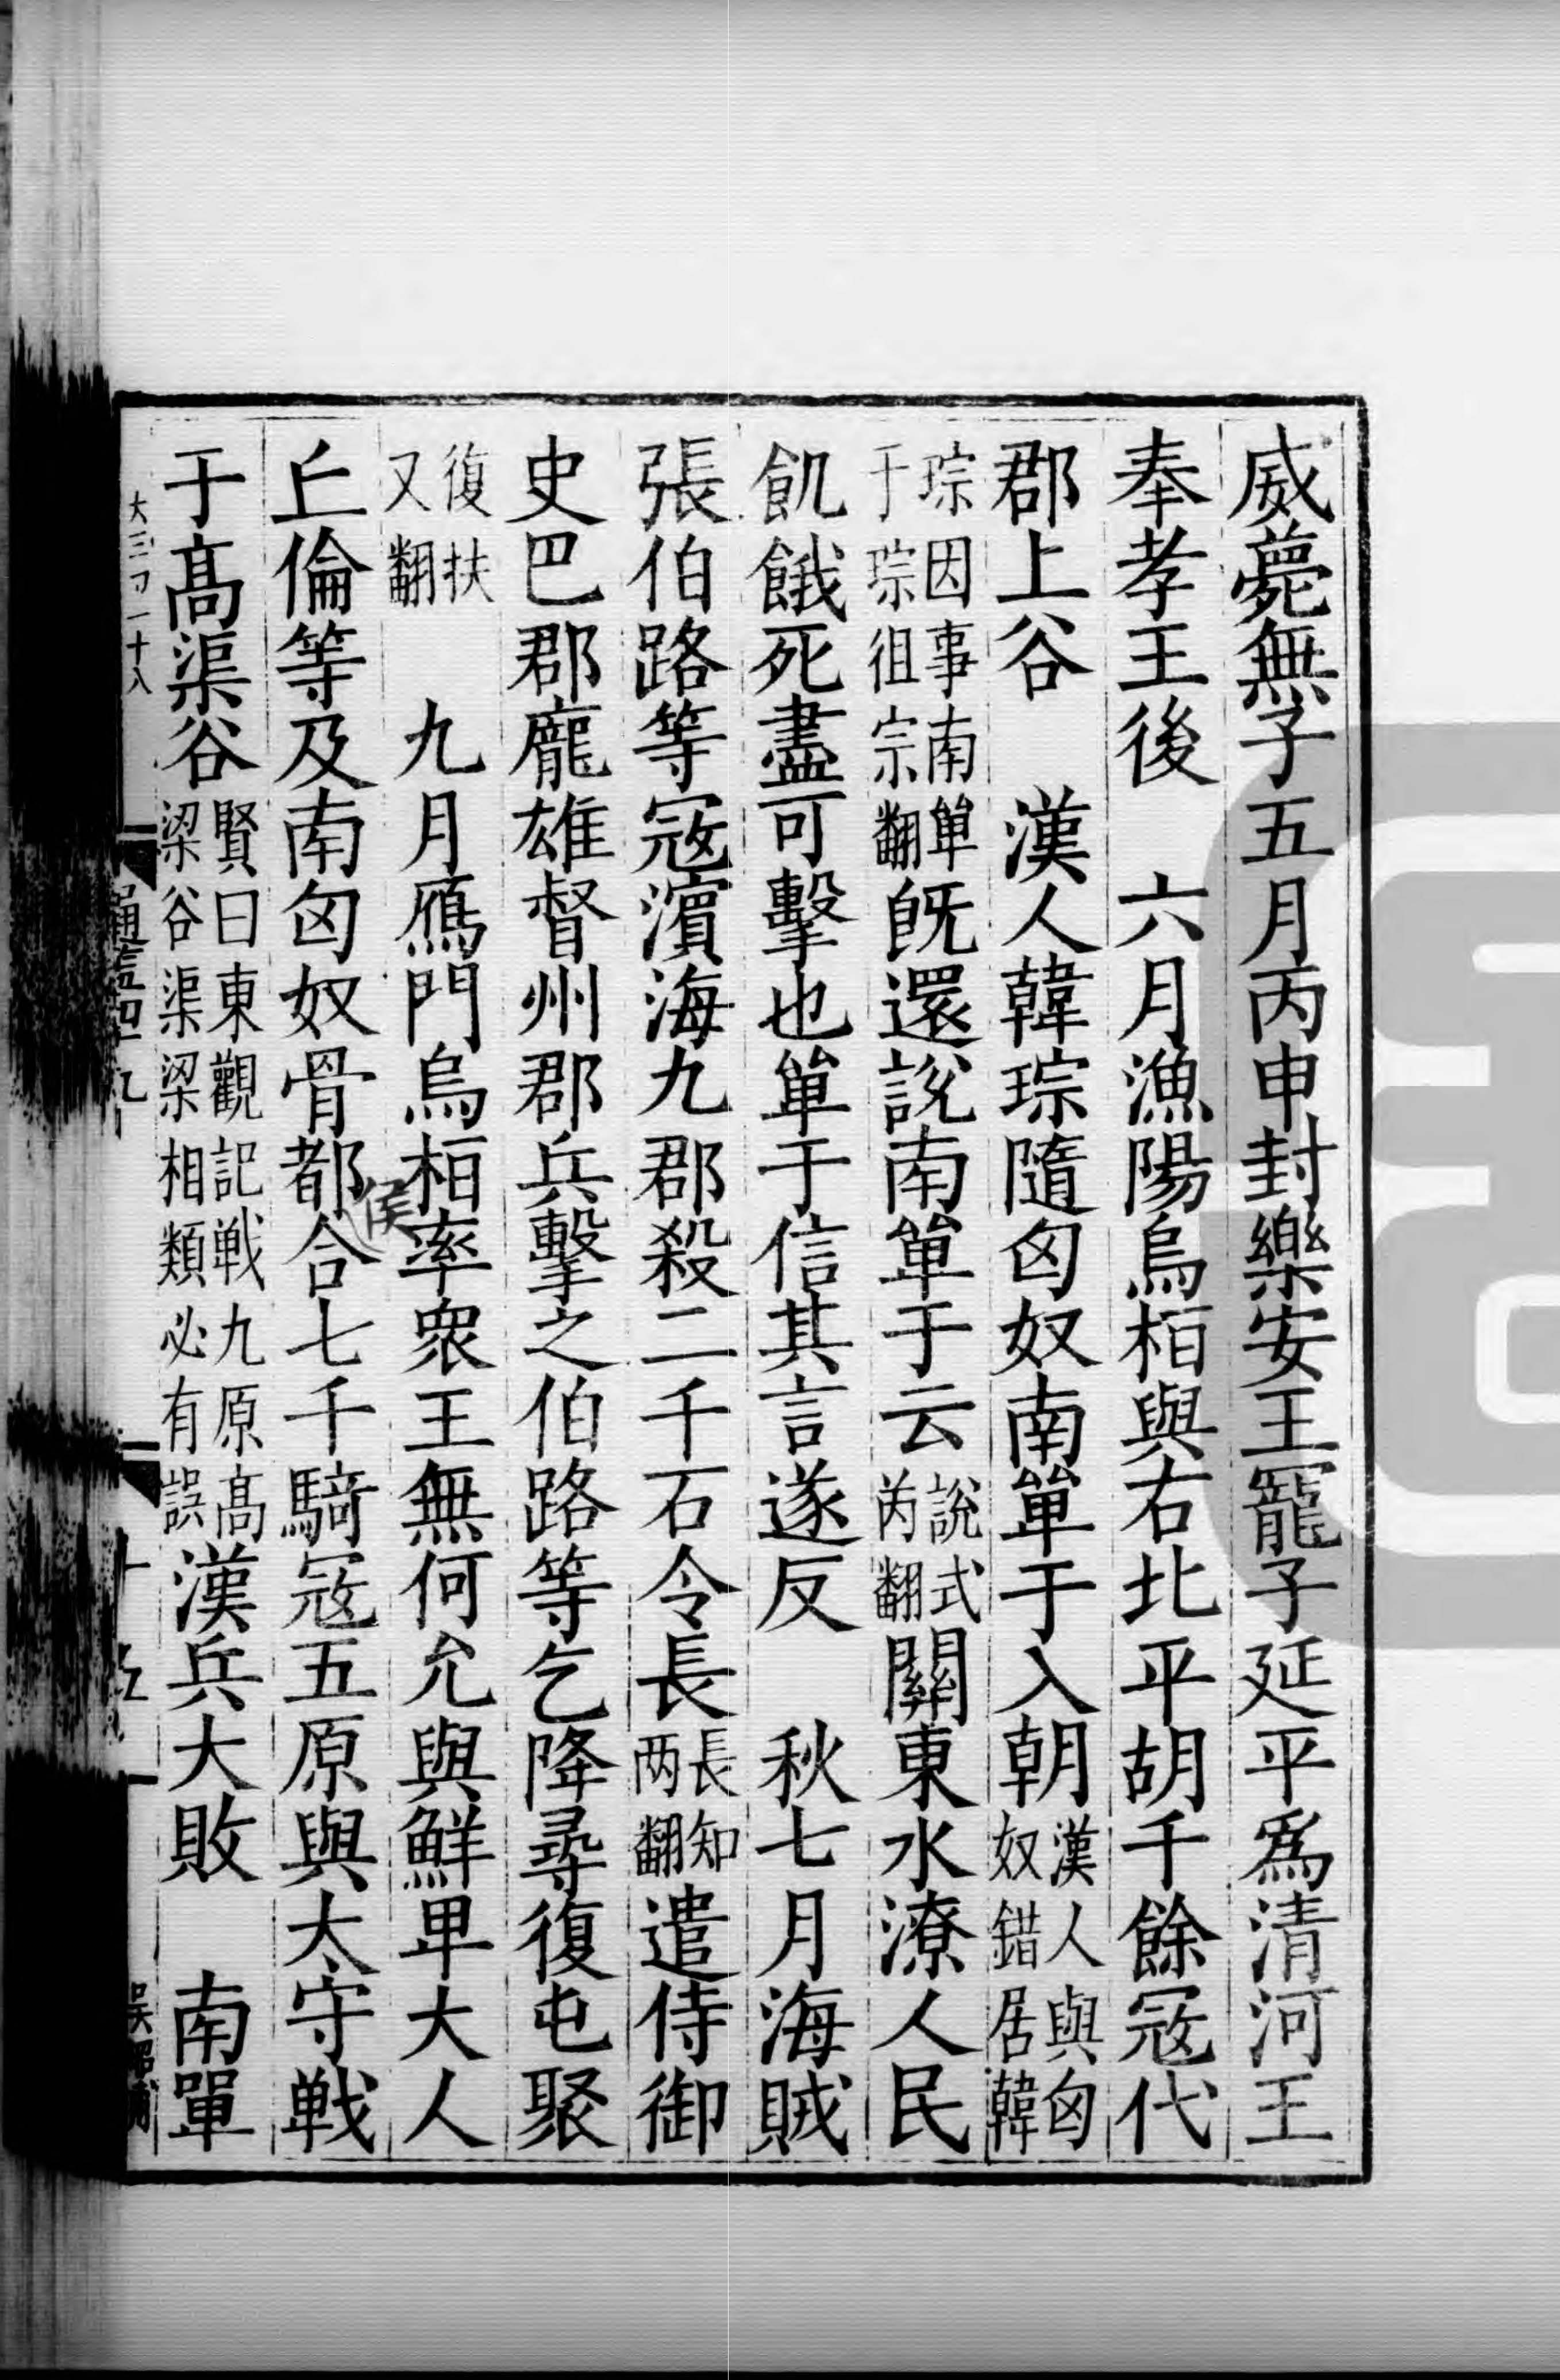 威薨無子五月丙申封樂安王寵子延平爲清河王
奉孝王後　六月漁陽烏桓與右北平胡千餘冦代
郡上谷　漢人韓琮隨匈奴南單于入朝漢人與匈奴錯居韓
琮因事南單于琮徂宗翻旣還說南單于云說式芮翻關東水潦人民
飢餓死盡可擊也單于信其言遂反　秋七月海賊
張伯路等冦濵海九郡殺二千石令長長知两翻遣侍御
史巴郡龐雄督州郡兵擊之伯路等乞降尋復屯聚
復扶又翻　九月鴈門烏桓率衆王無何允與鮮卑大人
丘倫等及南匈奴骨都合七千騎冦五原與太守戰
侯
于髙渠谷賢曰東觀記戰九原髙梁谷渠梁相類必有誤漢兵大敗　南單